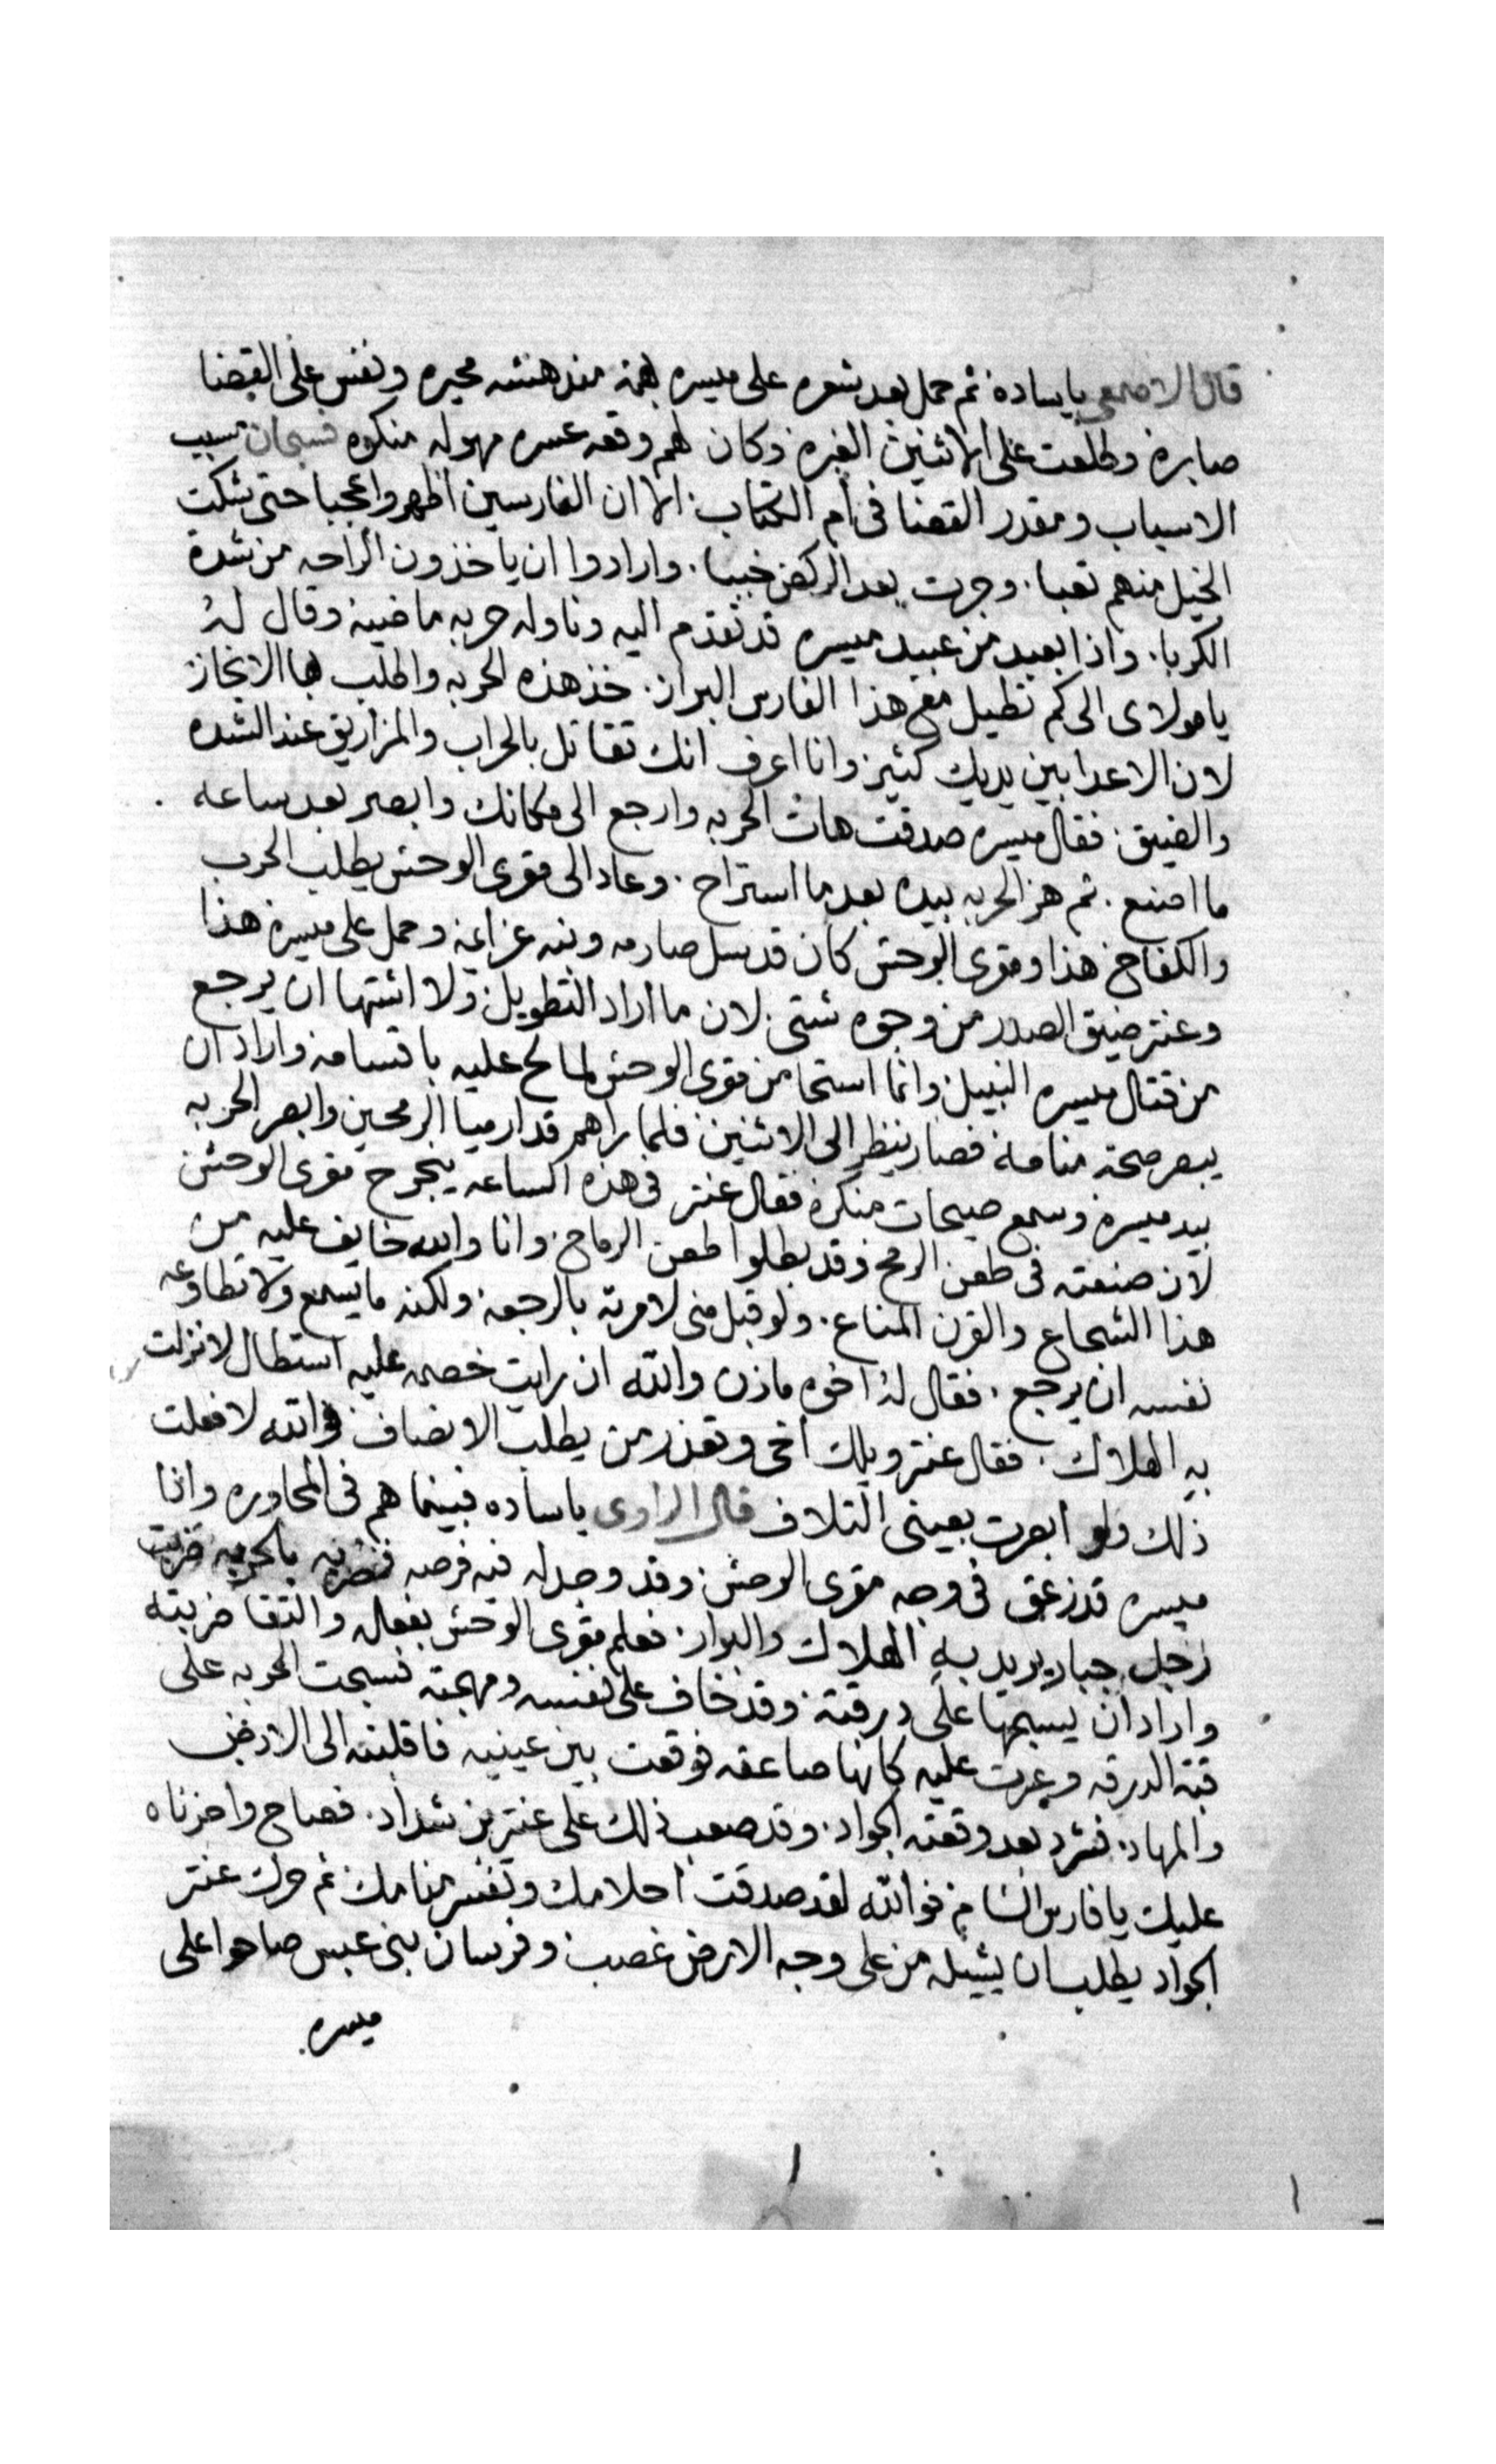 قال الاصمعى ياساده ثم حمل بعد شعره على ميسره بهمة مندهشه محيره ونفس على القضا
صابره وطلعت على الاثنين الغبره وكان لهم وقعه عسره مهوله منكره فسبحان مسبب
الاسباب ومقدر القضا فى ام الكتاب الا ان الفارسين اظهروا عجبا حتى شكت
الخيل منهم تعبا وجرت بعد الركض خببا وارادوا ان ياخذون الراحه من شدة
الكربا واذا بعبد من عبيد ميسره قد تقدم اليه وناوله حربه ماضيه وقال له
يا مولاى الى كم تطيل مع هذا الفارس البراز خذ هذه الحربه واطلب بها الانجاز
لان الاعدا بين يديك كثير وانا اعرف انك تقاتل بالحراب والمزاريق عند الشده
والضيق فقال ميسره صدقت هات الحربه وارجع الى مكانك وابصر بعد ساعه
ما اصنع ثم هز الحربه بيده بعد ما استراح وعاد الى مقرى الوحش يطلب الحرب
والكفاح هذا ومقرى الوحش كان قد سل صارمه ونبه عزايمه وحمل على ميسره هذا
وعنتر ضيق الصدر من وجوه شتى لان ما اراد التطويل ولا اشتها ان يرجع
من قتال ميسره النبيل وانما استحا من مقرى الوحش لما لح عليه باقسامه واراد ان
يبصر صحة منامه فصار ينظر الى الاثنين فلما راهم قد ارميا الرمحين وابصر الحربه
بيد ميسره وسمع صيحات منكره فقال عنتر فى هذه الساعه ينجرح مقرى الوحش
لان صنعته فى طعن الرمح وقد بطلوا طعن الرماح وانا والله خايف عليه من
هذا الشجاع والقرن المناع ولو قبل منى لامرته بالرجعه ولكنه ما يسمع ولا تطاوعه
نفسه ان يرجع فقال له اخوه مازن والله ان رايت خصمه عليه استطال لانزلت
به الهلاك فقال عنتر ويلك اخى وتغدر من يطلب الانصاف فوالله لا فعلت
ذلك ولو ابصرت بعينى التلاف قال الراوى ياساده فبينما هم فى المحاوره واذا
ميسره قد زعق فى وجه مقرى الوحش وقد وجد له فيه فرصه فضربه بالحربه ضربت
رجل جبار يريد به الهلاك والبوار فعلم مقرى الوحش بفعاله والتقا ضربته
واراد ان يسيبها على درقته وقد خاف على نفسه ومهجته فسبحت الحربه على
قبة الدرقه وعبرت عليه كانها صاعقه فوقعت بين عينيه فاقلبته الى الارض
والمهاد فشرد بعد وقعته الجواد وقد صعب ذلك على عنتر بن شداد فصاح واحزناه
عليك يا فارس الشام فوالله لقد صدقت احلامك وتفسر منامك ثم حرك عنتر
الجواد يطلب ان يشيله من على وجه الارض غصب وفرسان بنى عبس صاحوا على
ميسره